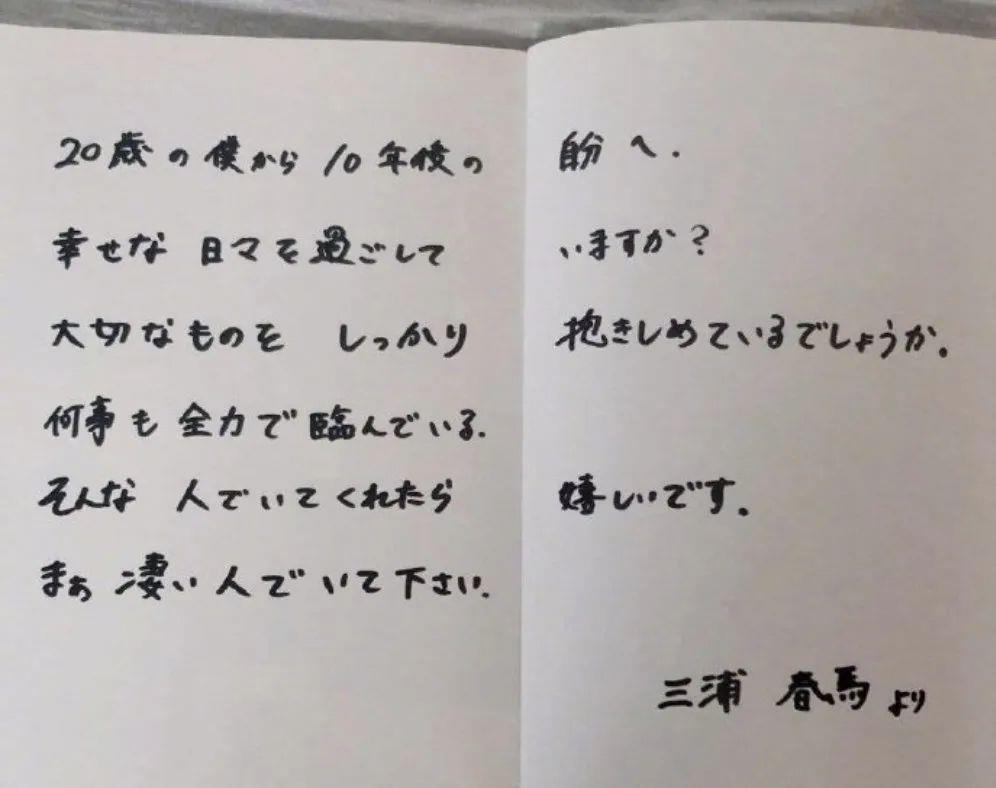 20歳の僕から10年後の自分へ.
幸せな日々を過ごしていますか?
大切なものを しっかり抱きしめているでしょうか。
何事も全力で臨んでいる.
そんな 人でいてくれたら嬉しいです。
まぁ 凄い人でいて下さい.
三浦 春馬より